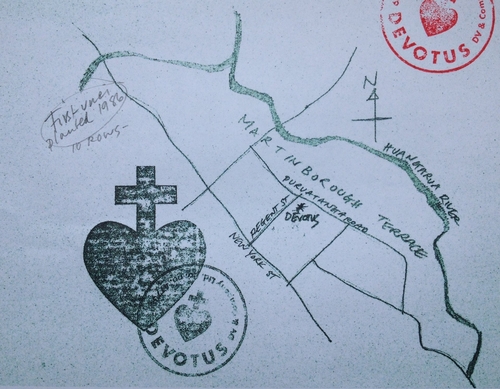 DEVOTUS
DV & Com
N
First vines
planted 1986
10 rows-
MARTINBOROUGH TERRACE
HUANGARUA RIVER
PURUATANGA ROAD
REGENT ST
DEVOTUS
NEW YORK ST
DEVOTUS